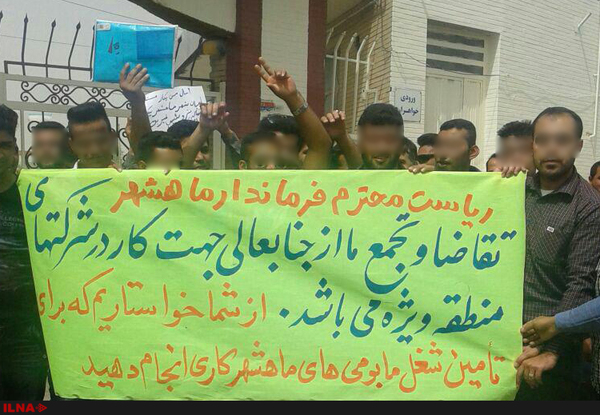 ورودی
خواهران
ریاست محترم فرماندار ماهشهر
تقاضا و تجمع ما از جنابعالی جهت کار در شرکتهای
منطقه ویژه می باشد. از شما خواستاریم که برای
تأمین شغل ما بومی های ماهشهر کاری انجام دهید
ILNA